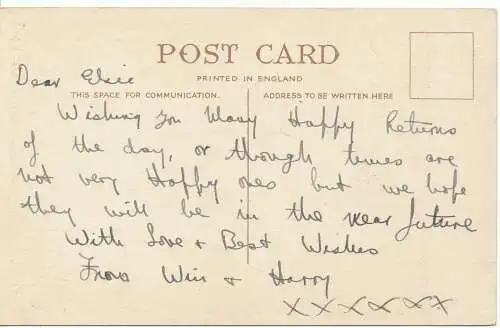 POST CARD
Dear Elsie
PRINTED IN ENGLAND
THIS SPACE FOR COMMUNICATION.
ADDRESS TO BE WRITTEN HERE
Wishing you Many Happy Returns
of the day, or though times are
not very Happy ones but we hope
they will be in the near future
With Love + Best Wishes
From Win + Harry
XXXXXXX